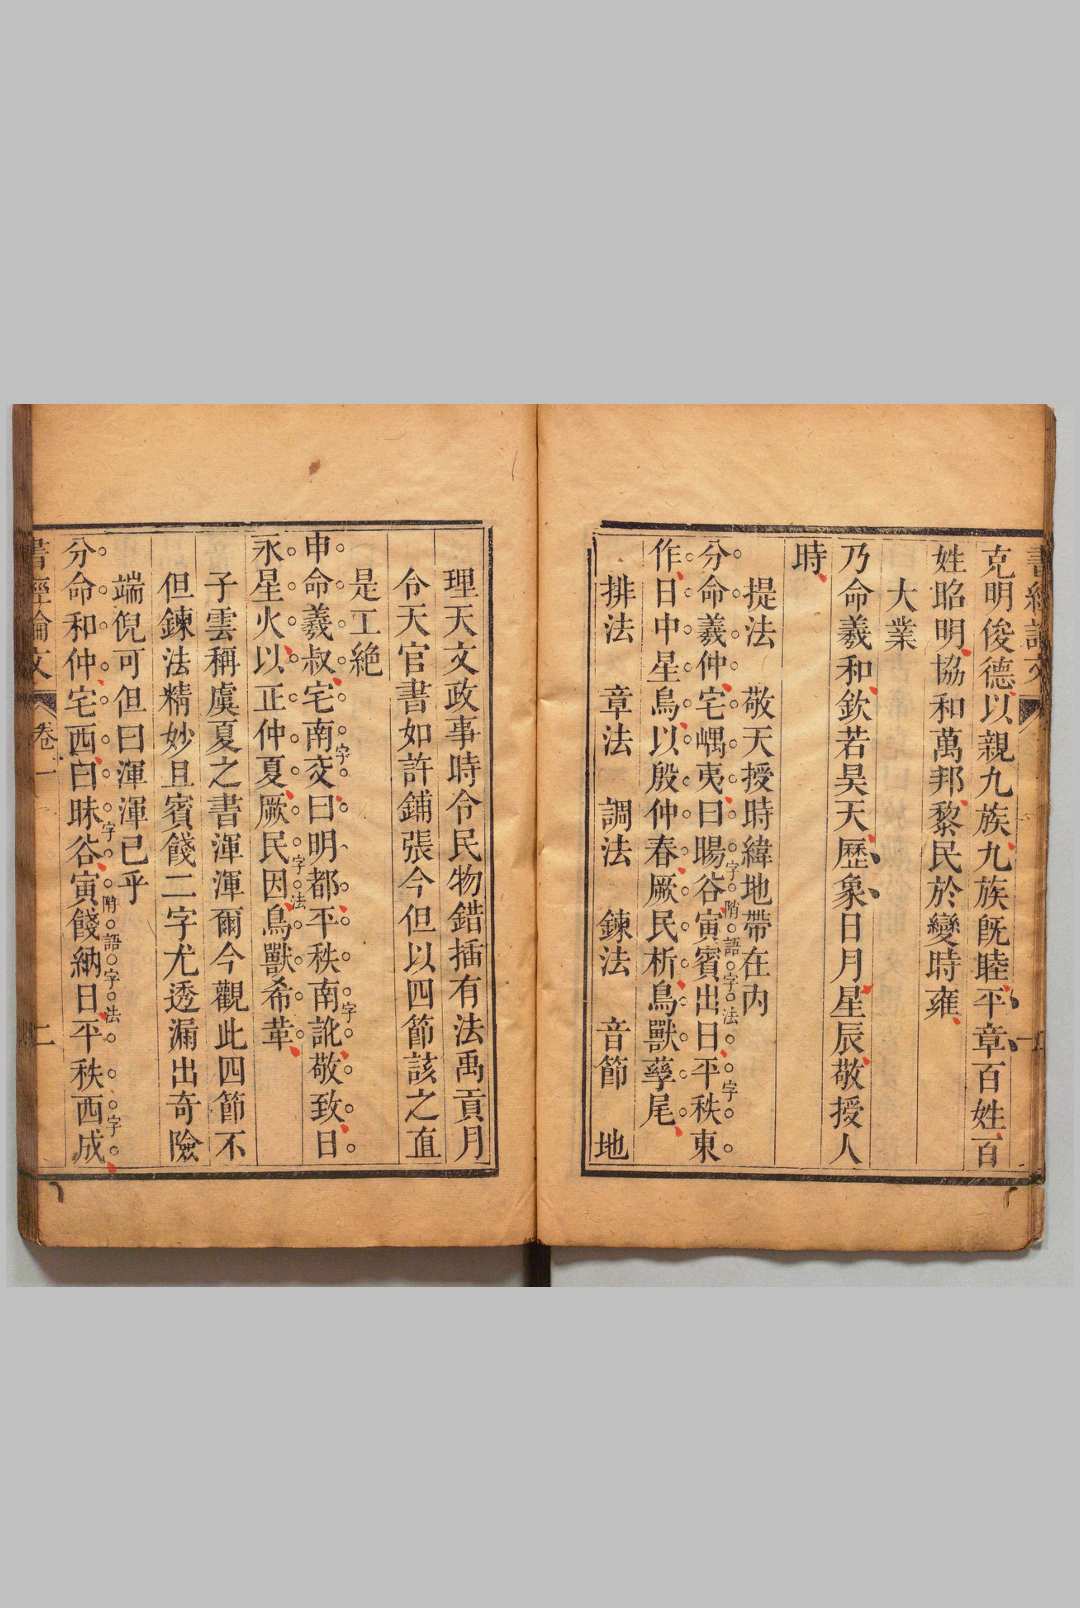 書經論文
克明俊德以親九族九族旣睦平章百姓百
姓昭明協和萬邦黎民於變時雍
大業
乃命羲和欽若昊天歷象日月星辰敬授人
時
提法 敬天授時緯地帶在內
分命羲仲宅嵎夷曰暘谷寅賓出日平秩東
字 附 語 字 法 字
作日中星鳥以殷仲春厥民析鳥獸孳尾
排法 章法 調法 鍊法 音節 地
理天文政事時令民物錯插有法禹貢月
令天官書如許鋪張今但以四節該之直
是工絶
申命羲叔宅南交曰明都平秩南訛敬致日
字 字
永星火以正仲夏厥民因鳥獸希革
字 法
子雲稱虞夏之書渾渾爾今觀此四節不
但鍊法精妙且賓餞二字尤透漏出奇險
端倪可但曰渾渾已乎
分命和仲宅西曰昧谷寅餞納日平秩西成
字 附 語 字 法 字
書經論文 卷一 二